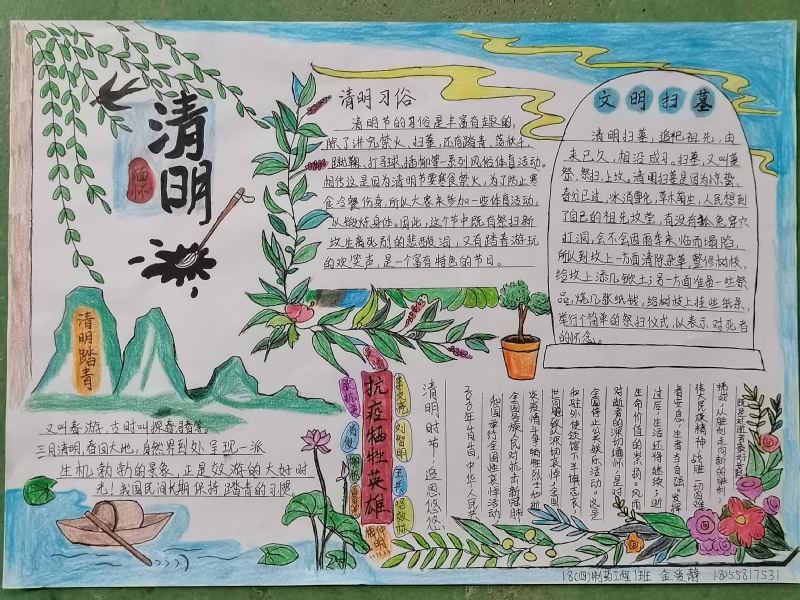 清明
缅怀
清明习俗
清明节的习俗是丰富有趣的,
除了讲究禁火、扫墓,还有踏青、荡秋千、
蹴鞠、打马球、插柳等一系列风俗体育活动。
相传这是因为清明节要寒食禁火,为了防止寒
食冷餐伤身,所以大家来参加一些体育活动,
以锻炼身体。因此,这个节中既有祭扫新
坟生离死别的悲酸泪,又有踏青游玩
的欢笑声,是一个富有特色的节日。
文明扫墓
清明扫墓,追祀祖先,由
来已久,相沿成习。扫墓,又叫墓
祭、祭扫、上坟。清明扫墓是因为惊蛰、
春分已过,冰消雪化,草木萌生,人民想到
了自己的祖先坟茔,有没有狐兔穿穴
打洞,会不会因雨季来临而塌陷,
所以到坟上一方面清除杂草,整修树枝,
给坟上添几锨土;另一方面准备一些祭
品,烧几张纸钱,给树枝上挂些纸条,
举行个简单的祭扫仪式,以表示对死者
的怀念。
清明踏青
又叫春游,古时叫探春、寻春等。
三月清明,春回大地,自然界到处呈现一派
生机勃勃的景象,正是郊游的大好时
光!我国民间长期保持踏青的习惯
抗疫牺牲英雄
清明时节,追思悠悠,
全国各族人民对抗击新冠肺
炎疫情斗争牺牲烈士和逝
世同胞的深切哀悼,全国
和驻外使领馆下半旗志哀,
全国停止公共娱乐活动。这是
对逝者的深切缅怀,是对
生命价值的崇高。风雨
过后,生活还将继续;逝
者安息,生者当自强。发挥
伟大民族精神,战胜一切困难
挑战,从胜利走向新的胜利!
18(四)制药工程1班 金爱静 18055817531